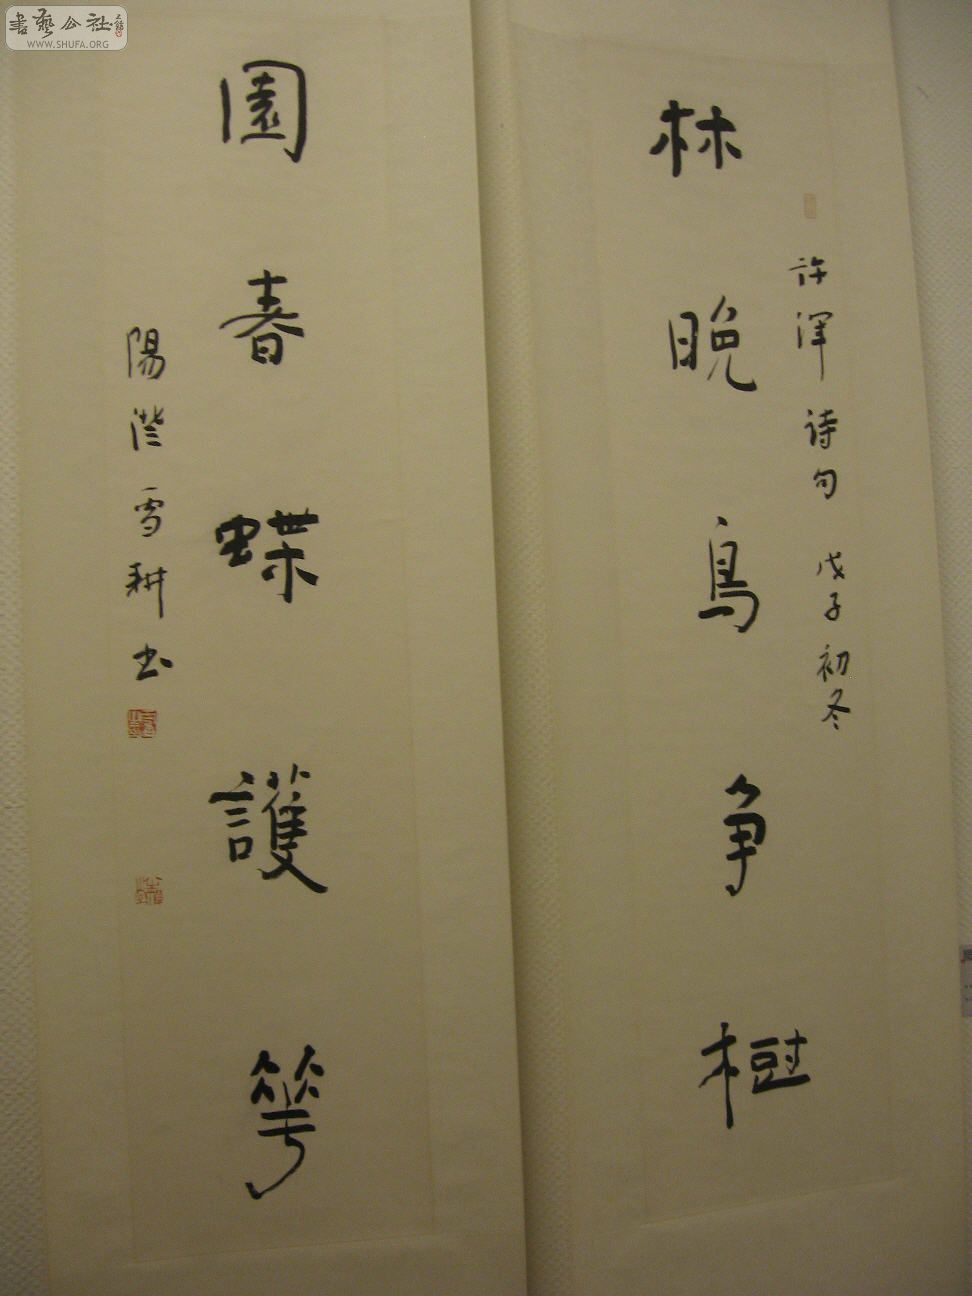 林晚鳥争樹
許渾诗句 戊子初冬
園春蝶護華
陽澄雪耕书
書藝公社
WWW.SHUFA.ORG